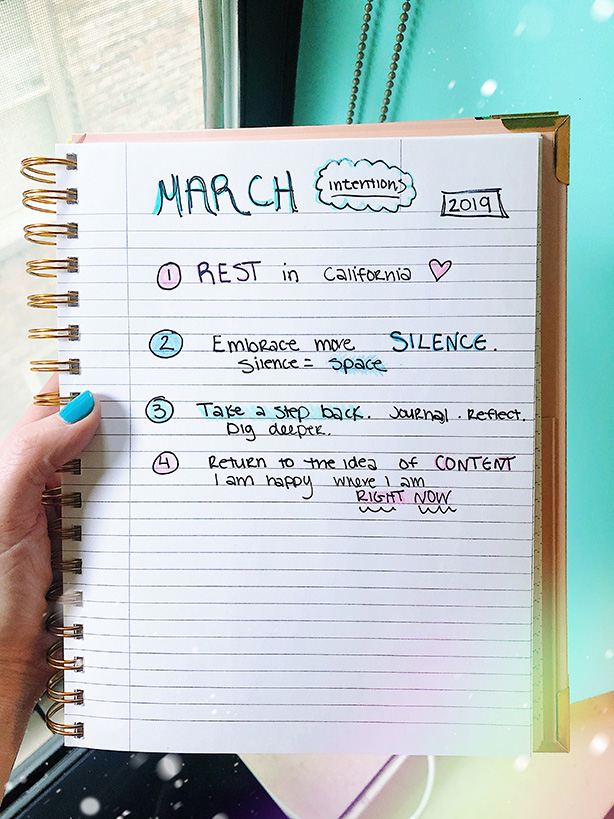 MARCH intentions 2019
1 REST in California ♡
2 Embrace more SILENCE.
Silence = space
3 Take a step back. Journal. Reflect.
Dig deeper.
4 Return to the idea of CONTENT
I am happy where I am
RIGHT NOW